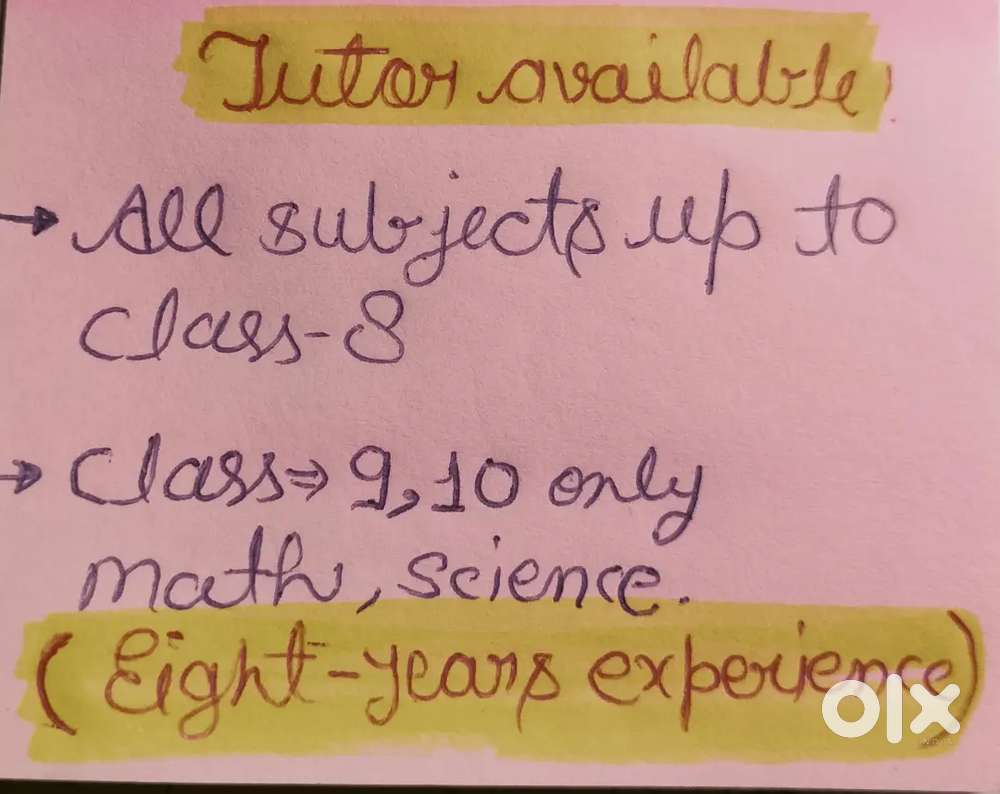 Tutor available
→ All subjects up to
class-8
→ Class⇒ 9,10 only
math, science.
(Eight-years experience)
olx